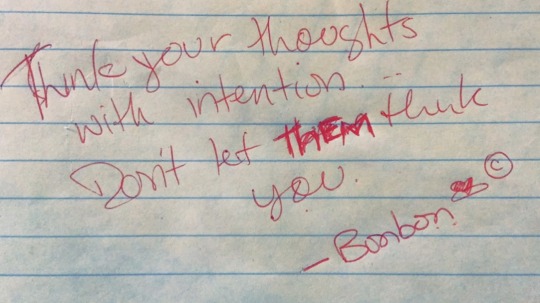 Think your thoughts
with intention...
Don't let THEM think
you.
- Bonbon ©